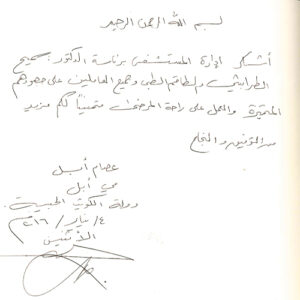 بسم الله الرحمن الرحيم
أشكر إدارة المستشفى برئاسة الدكتور: سميح
الطرابيشي والطاقم الطبي وجميع العاملين على جهودهم
المتميزة والعمل على راحة المرضى متمنياً لكم مزيد
من التوفيق والنجاح
عصام أبل
أبل
دولة الكويت الحبيبة
٤ / يناير / ٢٠١٦
الأثنين